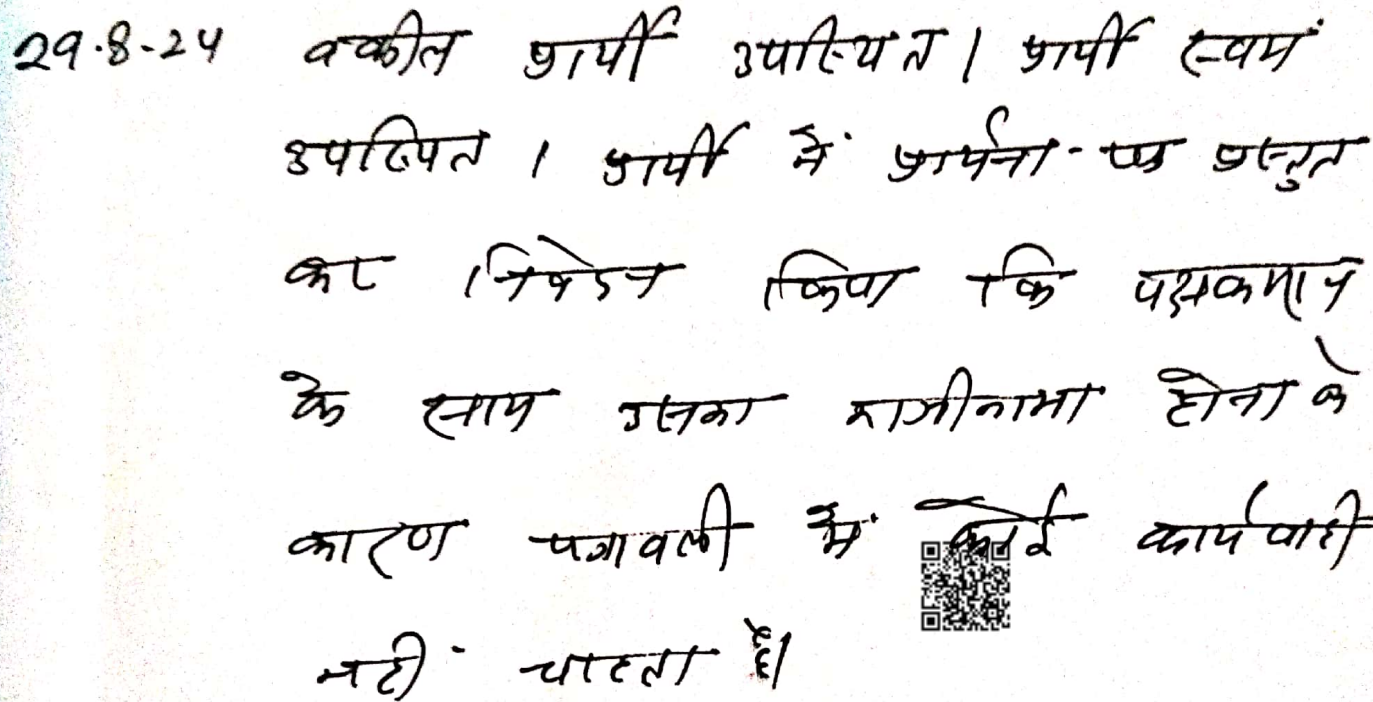 29.8.24 वकील प्रार्थी उपस्थित। प्रार्थी स्वयं
उपस्थित। प्रार्थी ने प्रार्थना-पत्र प्रस्तुत
कर निवेदन किया कि पक्षकारान
के साथ उसका राजीनामा होना के
कारण पत्रावली में कोई कार्यवाही
नहीं चाहता है।